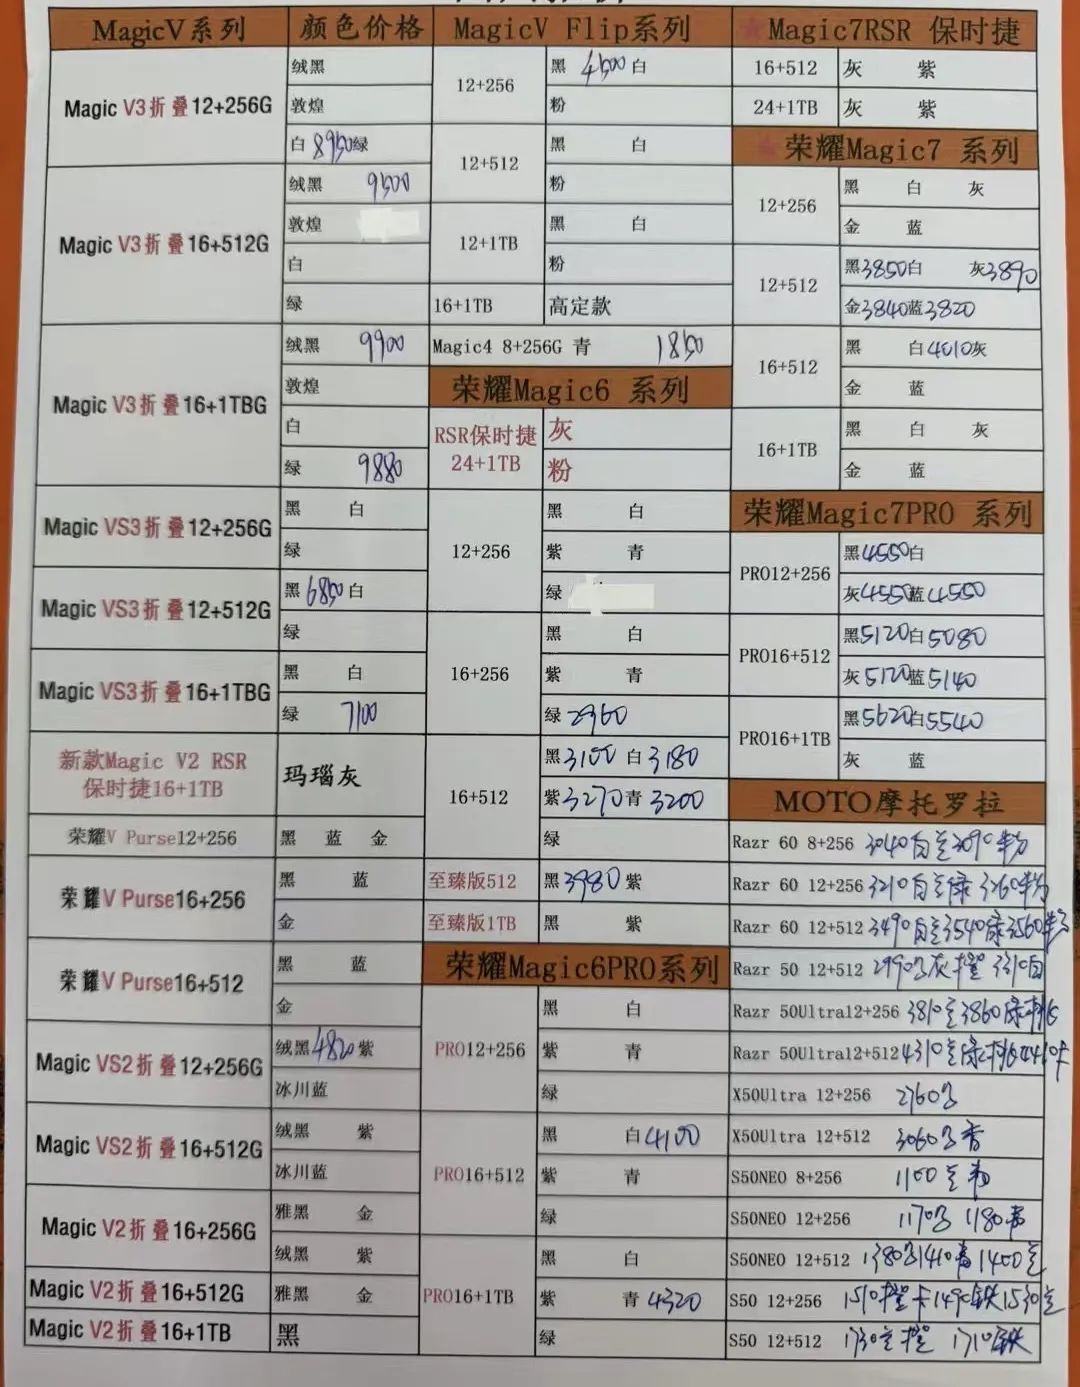 MagicV系列 颜色价格
Magic V3折叠12+256G
绒黑
敦煌
白 8950 绿
Magic V3折叠16+512G
绒黑 9500
敦煌
白
绿
Magic V3折叠16+1TBG
绒黑 9900
敦煌
白
绿 9880
Magic VS3折叠12+256G
黑 白
绿
Magic VS3折叠12+512G
黑 6850 白
绿
Magic VS3折叠16+1TBG
黑 白
绿 7100
新款Magic V2 RSR
保时捷16+1TB
玛瑙灰
荣耀V Purse12+256 黑 蓝 金
荣耀V Purse16+256
黑 蓝
金
荣耀V Purse16+512
黑 蓝
金
Magic VS2折叠12+256G
绒黑4820 紫
冰川蓝
Magic VS2折叠16+512G
绒黑 紫
冰川蓝
Magic V2折叠16+256G
雅黑 金
绒黑 紫
Magic V2折叠16+512G 雅黑 金
Magic V2折叠16+1TB 黑
MagicV Flip系列
12+256
黑 4500 白
粉
12+512
黑 白
粉
12+1TB
黑 白
粉
16+1TB 高定款
Magic4 8+256G 青 1850
荣耀Magic6 系列
RSR保时捷
24+1TB
灰
粉
12+256
黑 白
紫 青
绿
16+256
黑 白
紫 青
绿 2960
16+512
黑3100 白3180
紫3270 青3200
绿
至臻版512 黑3980 紫
至臻版1TB 黑 紫
荣耀Magic6PRO系列
PRO12+256
黑 白
紫 青
绿
PRO16+512
黑 白4100
紫 青
绿
PRO16+1TB
黑 白
紫 青4320
绿
★Magic7RSR 保时捷
16+512 灰 紫
24+1TB 灰 紫
★荣耀Magic7 系列
12+256
黑 白 灰
金 蓝
12+512
黑3850白 灰3890
金3840蓝3820
16+512
黑 白4010灰
金 蓝
16+1TB
黑 白 灰
金 蓝
荣耀Magic7PRO 系列
PRO12+256
黑4550白
灰4550蓝4550
PRO16+512
黑5120白5080
灰5120蓝5140
PRO16+1TB
黑5620白5540
灰 蓝
MOTO摩托罗拉
Razr 60 8+256 3040 3090
Razr 60 12+256 3210 3260
Razr 60 12+512 3490 3540 3560
Razr 50 12+512 2990 灰 3310
Razr 50Ultra12+256 3810 3860
Razr 50Ultra12+512 4310 4410
X50Ultra 12+256 2760
X50Ultra 12+512 3060
S50NEO 8+256 1100
S50NEO 12+256 1170 1180
S50NEO 12+512 1380 1410 1400
S50 12+256 1510 1490 1530
S50 12+512 1730 1710